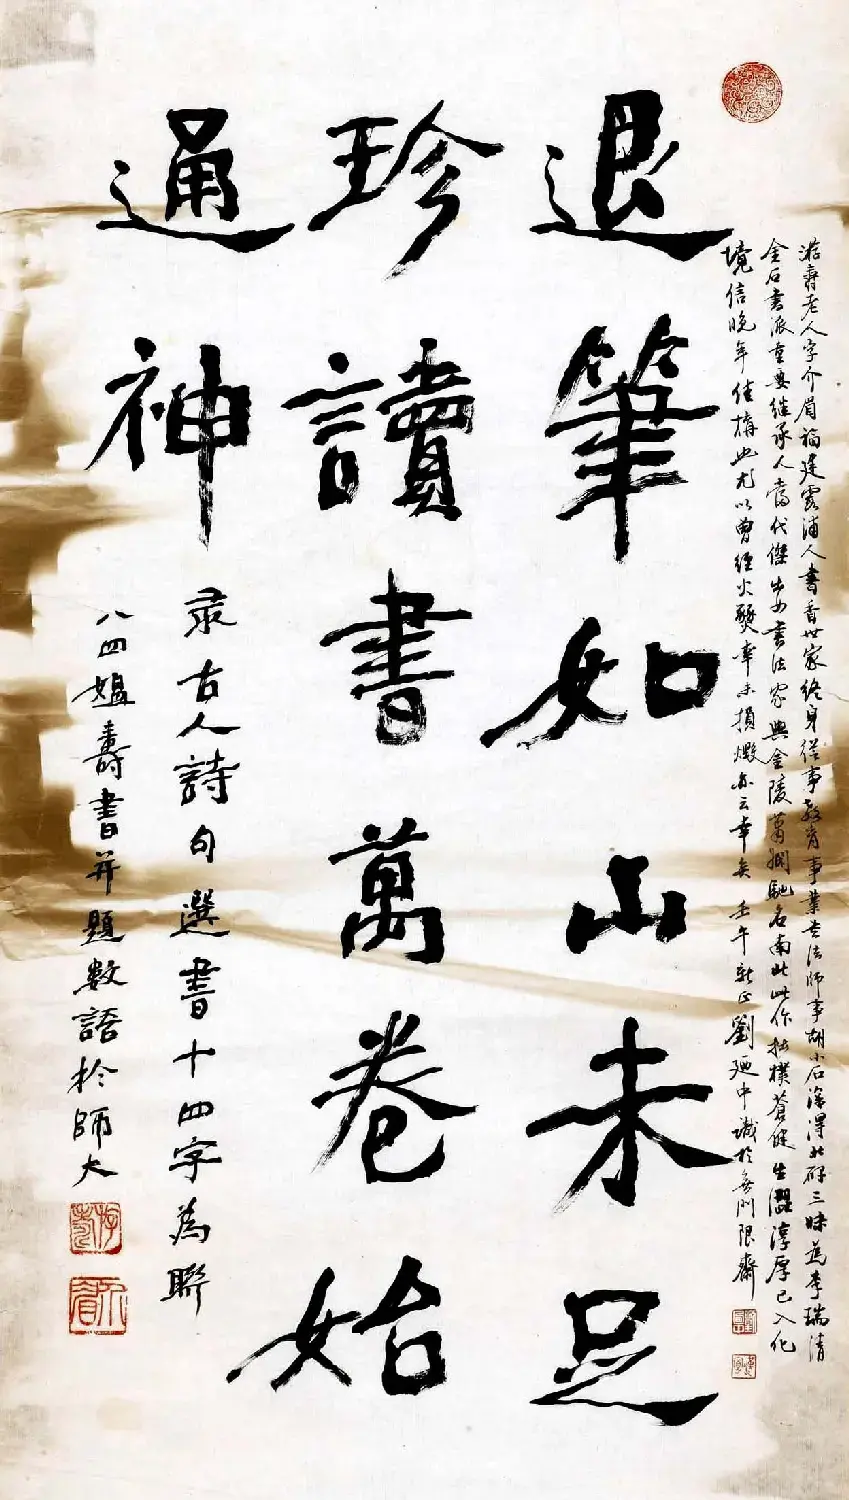 游壽老人字介眉福建霞浦人書香世家終身從事教育事業书法師事胡小石深得北碑三昧為李瑞清
金石書派重要继承人當代傑出女書法家與金陵蕭嫻馳名南北此作拙樸蒼健生澀淳厚已入化
境信晚年佳構也尤以曾經火燹幸未損燬亦云幸矣 壬午新正劉廼中識於無門限齋
退筆如山未足
珍讀書萬卷始
通神
录古人詩句選書十四字為聯
八四媼壽書并題數語於師大
游壽
介眉